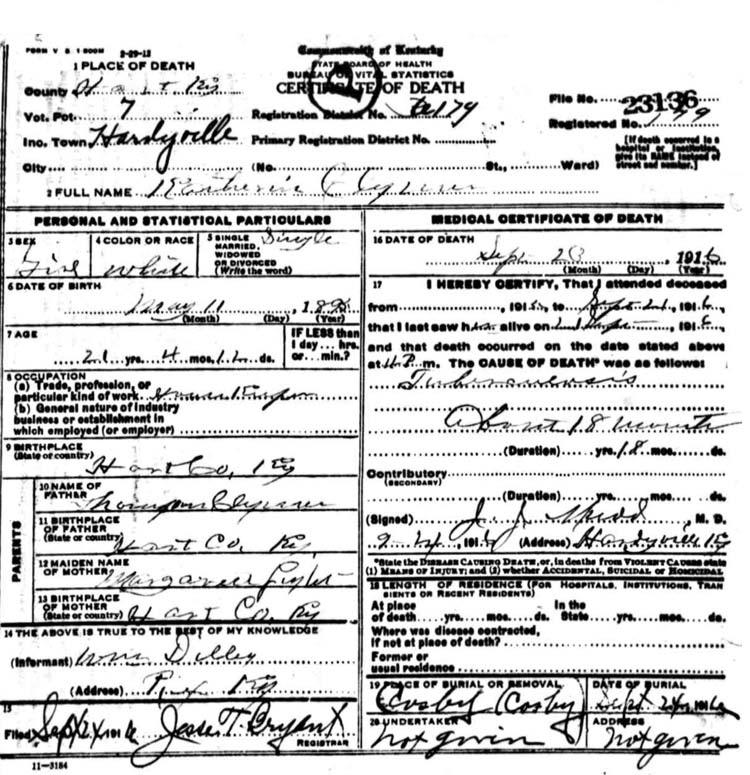 FORM V S 1-500M 2-29-12
Commonwealth of Kentucky
STATE BOARD OF HEALTH
BUREAU OF VITAL STATISTICS
CERTIFICATE OF DEATH
1 PLACE OF DEATH
County Hart Ky
Vot. Pct. 7
Inc. Town Hardyville
City
Registration District No.
Primary Registration District No.
(No. St., Ward)
File No. 23136
Registered No.
[If death occurred in a
hospital or institution,
give its NAME instead of
street and number.]
2 FULL NAME
PERSONAL AND STATISTICAL PARTICULARS
3 SEX
Girl
4 COLOR OR RACE
White
5 SINGLE
MARRIED,
WIDOWED
OR DIVORCED
(Write the word)
Single
6 DATE OF BIRTH
May 11
(Month) (Day) (Year)
7 AGE
21 yrs. 4 mos. 12 ds.
IF LESS than
1 day... hrs.
or... min.?
8 OCCUPATION
(a) Trade, profession, or
particular kind of work
(b) General nature of industry
business or establishment in
which employed (or employer)
9 BIRTHPLACE
(State or country)
Hart Co, Ky
PARENTS
10 NAME OF
FATHER
11 BIRTHPLACE
OF FATHER
(State or country)
Hart Co, Ky,
12 MAIDEN NAME
OF MOTHER
Margaret
13 BIRTHPLACE
OF MOTHER
(State or country)
Hart Co, Ky
14 THE ABOVE IS TRUE TO THE BEST OF MY KNOWLEDGE
(Informant)
(Address) Ky
15
Filed Sept 24 1916 Jesse T. Bryant
REGISTRAR
11-3184
MEDICAL CERTIFICATE OF DEATH
16 DATE OF DEATH
Sept 23 1916
(Month) (Day) (Year)
17 I HEREBY CERTIFY, That I attended deceased
from 191 to 1916,
that I last saw alive on 1916
and that death occurred on the date stated above
at m. The CAUSE OF DEATH* was as follows:
Tuberculosis
About 18 months
(Duration) yrs. 18 mos. ds.
Contributory
(SECONDARY)
(Duration) yrs. mos. ds.
(Signed) J. J. M. D.
191 (Address) Hardyville Ky
*State the DISEASE CAUSING DEATH, or, in deaths from VIOLENT CAUSES state
(1) MEANS OF INJURY; and (2) whether ACCIDENTAL, SUICIDAL or HOMICIDAL
18 LENGTH OF RESIDENCE (FOR HOSPITALS, INSTITUTIONS, TRAN
SIENTS OR RECENT RESIDENTS)
At place
of death yrs. mos. ds.
In the
State yrs. mos. ds.
Where was disease contracted,
if not at place of death?
Former or
usual residence
19 PLACE OF BURIAL OR REMOVAL
Cosby Cosby
DATE OF BURIAL
Sept. 24 1916
20 UNDERTAKER
not given
ADDRESS
not given